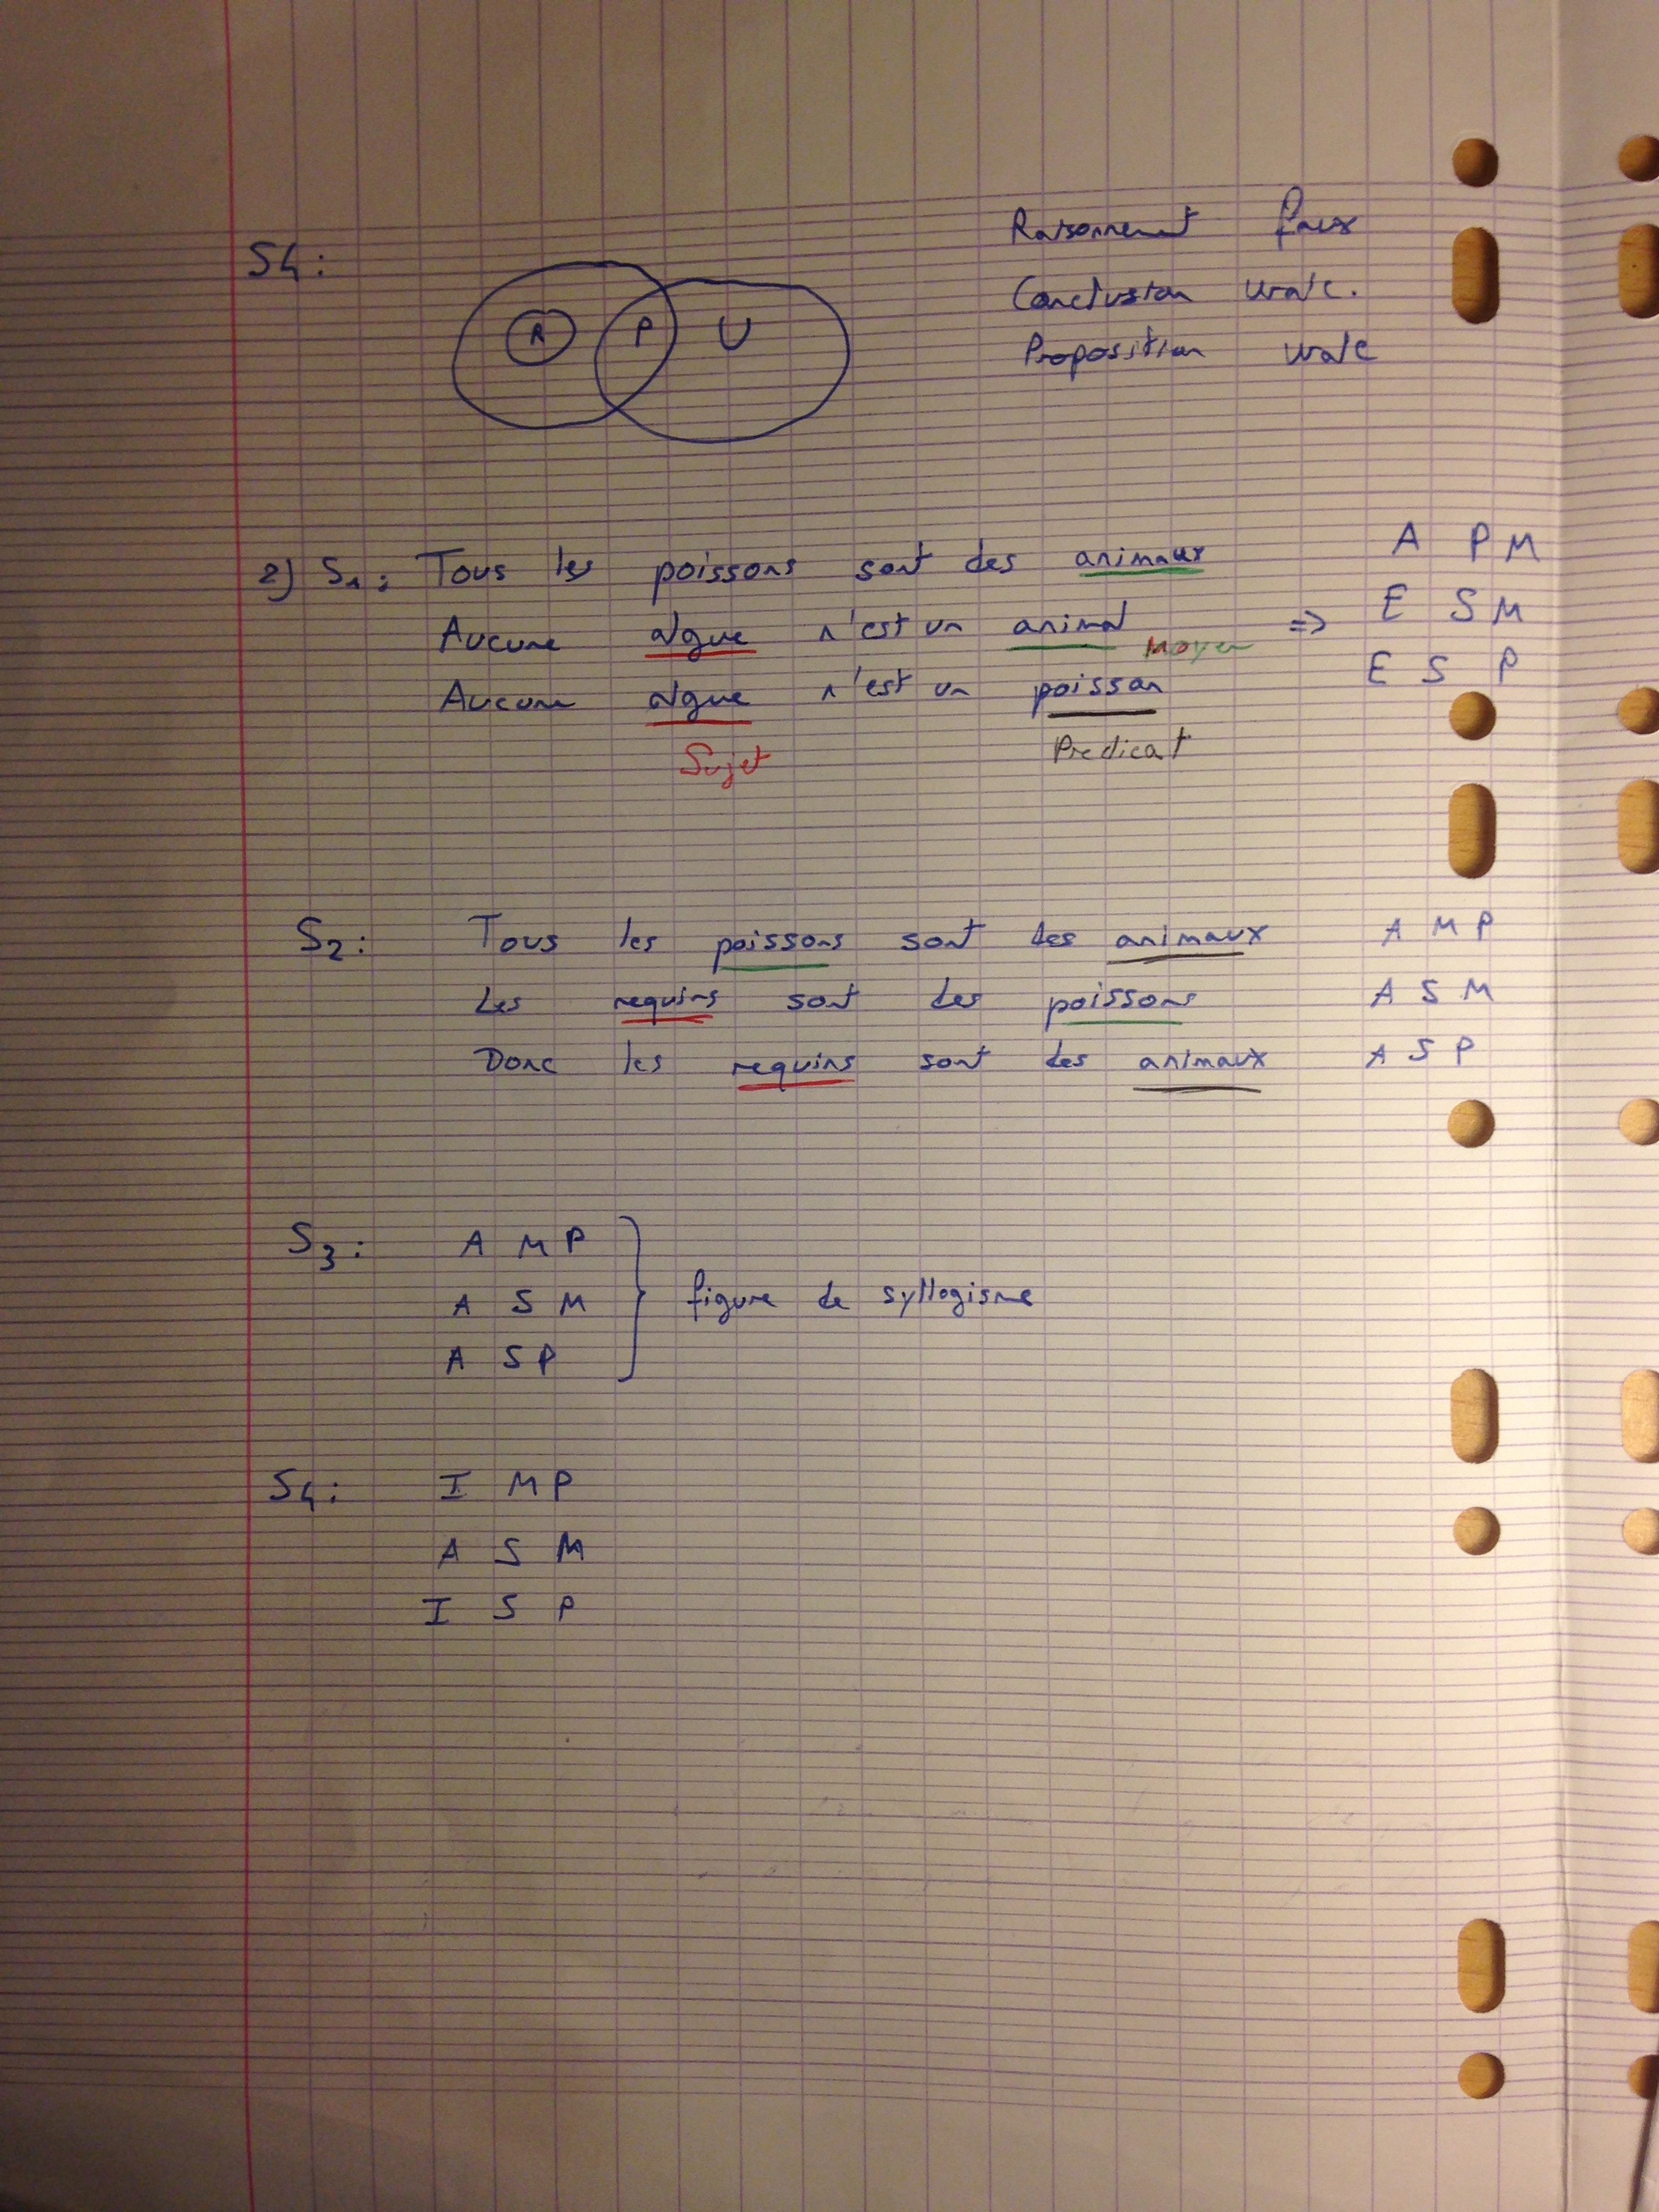 S4 :
Raisonnement faux
Conclusion vraie.
Proposition vraie
R P U
2) S1 : Tous les poissons sont des animaux A P M
Aucune algue n'est un animal => E S M
moyen
Aucune algue n'est un poisson E S P
Sujet Predicat
S2 : Tous les poissons sont des animaux A M P
Les requins sont des poissons A S M
Donc les requins sont des animaux A S P
S3 : A M P
A S M figure de syllogisme
A S P
S4 : I M P
A S M
I S P